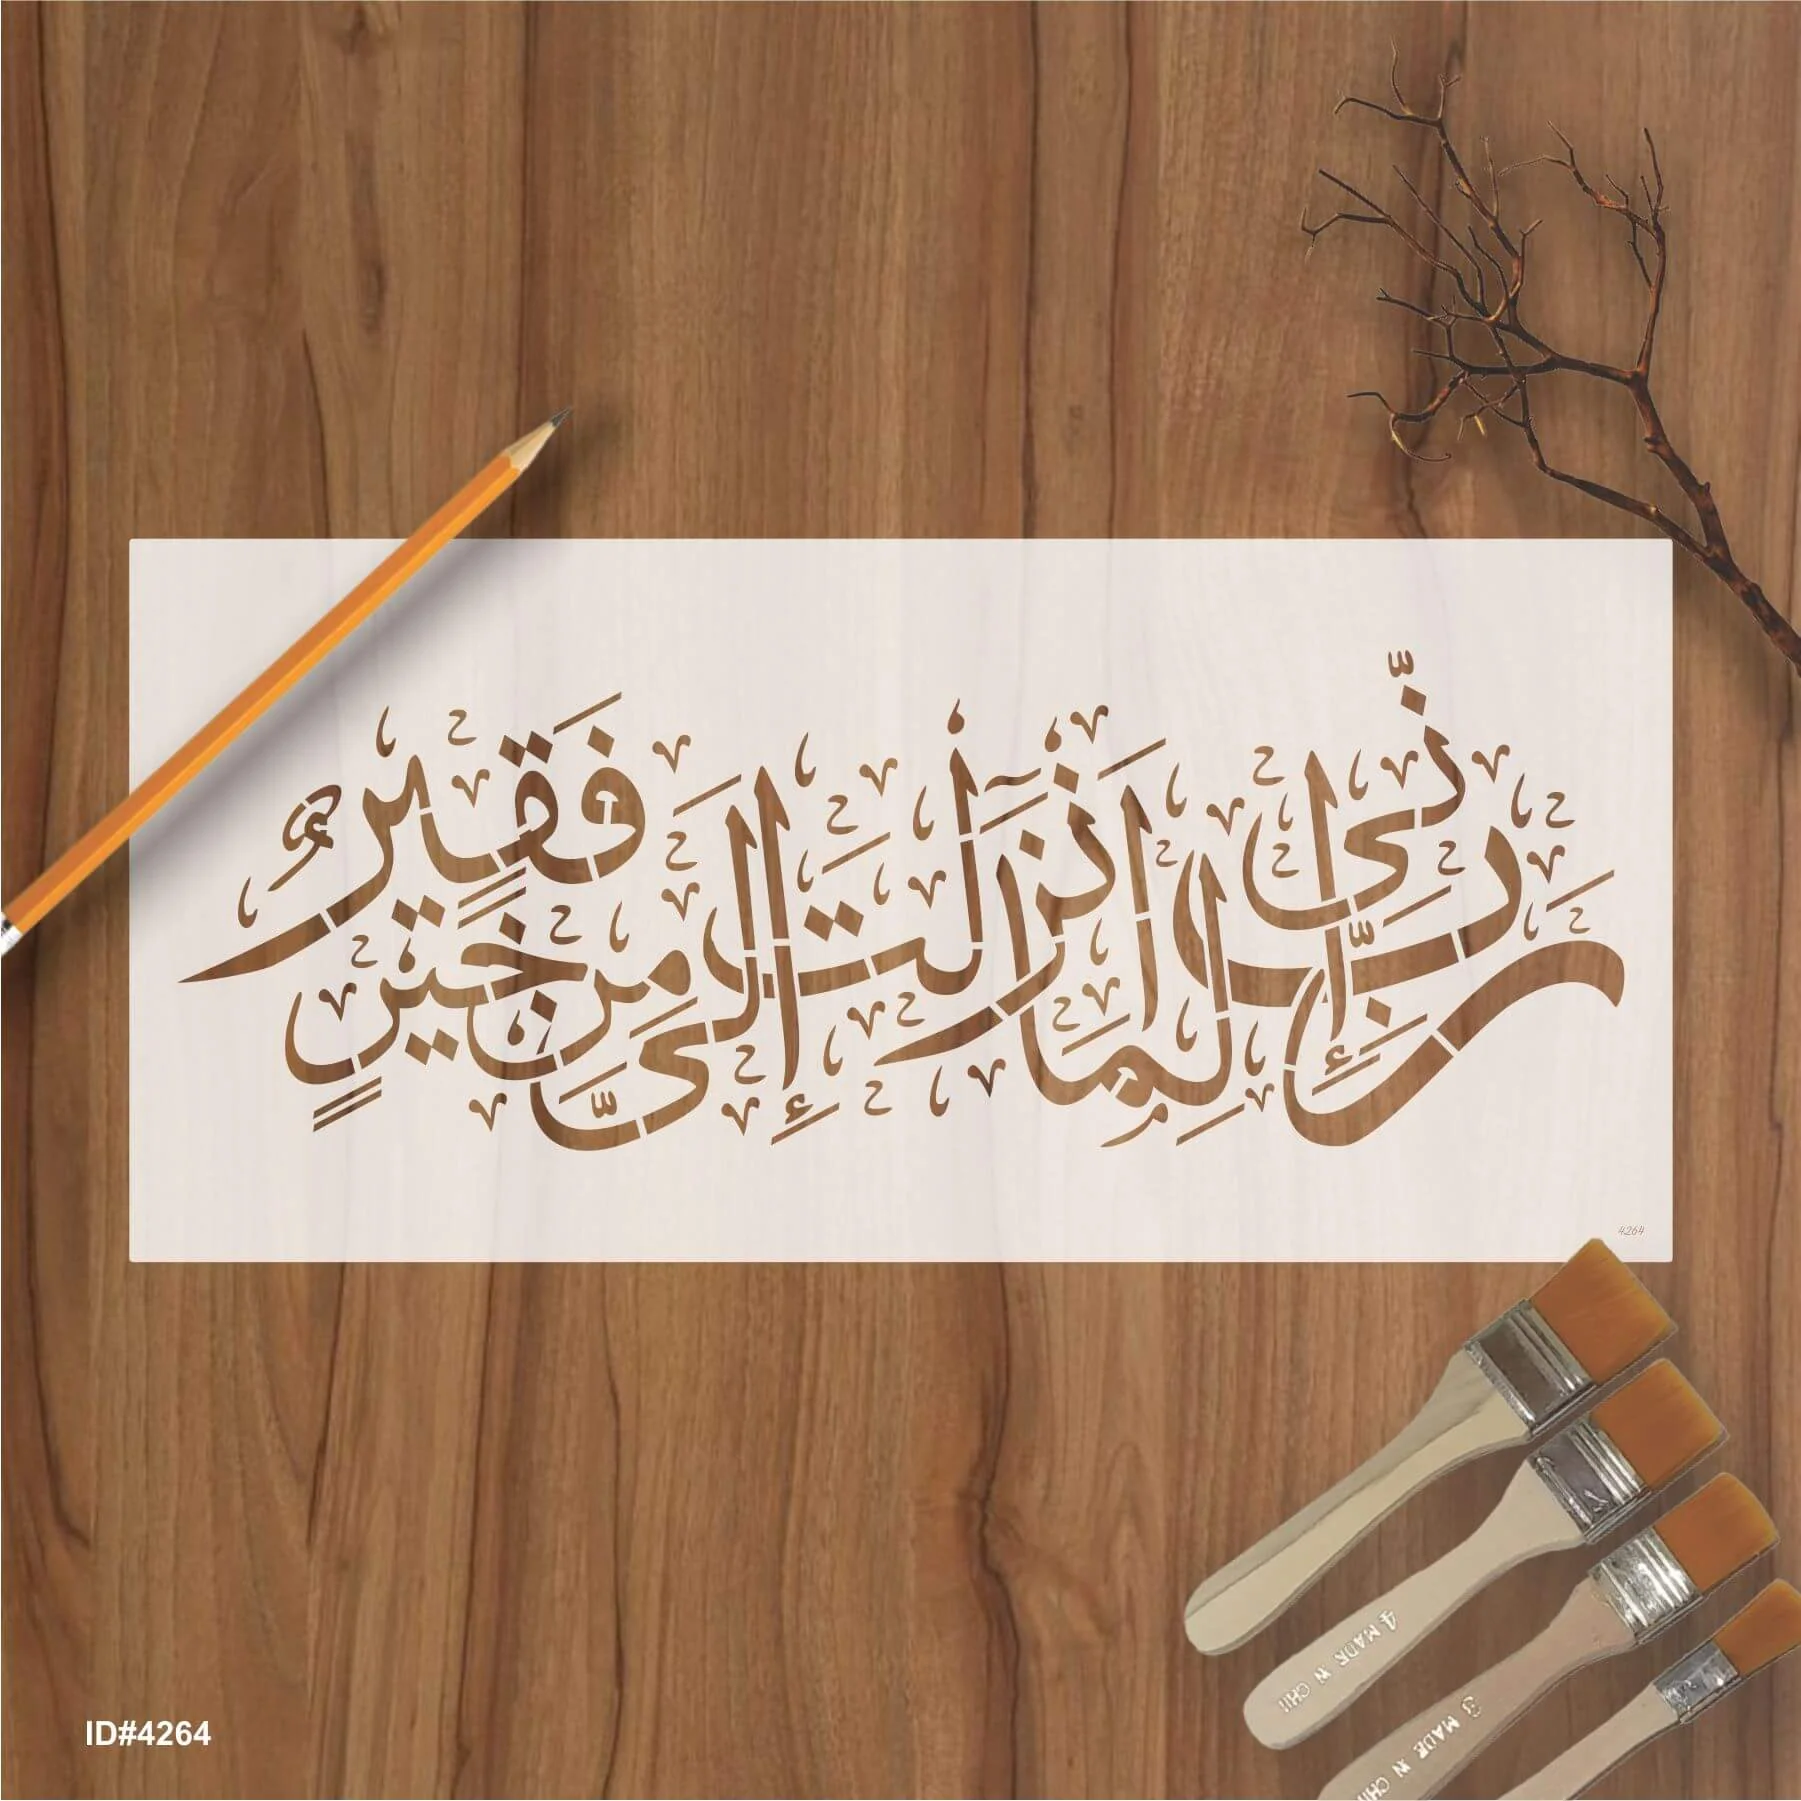 رَبِّ إِنِّي لِمَا أَنْزَلْتَ إِلَيَّ مِنْ خَيْرٍ فَقِيرٌ
4264
4 MADE IN CHI
3 MADE IN CHI
ID#4264